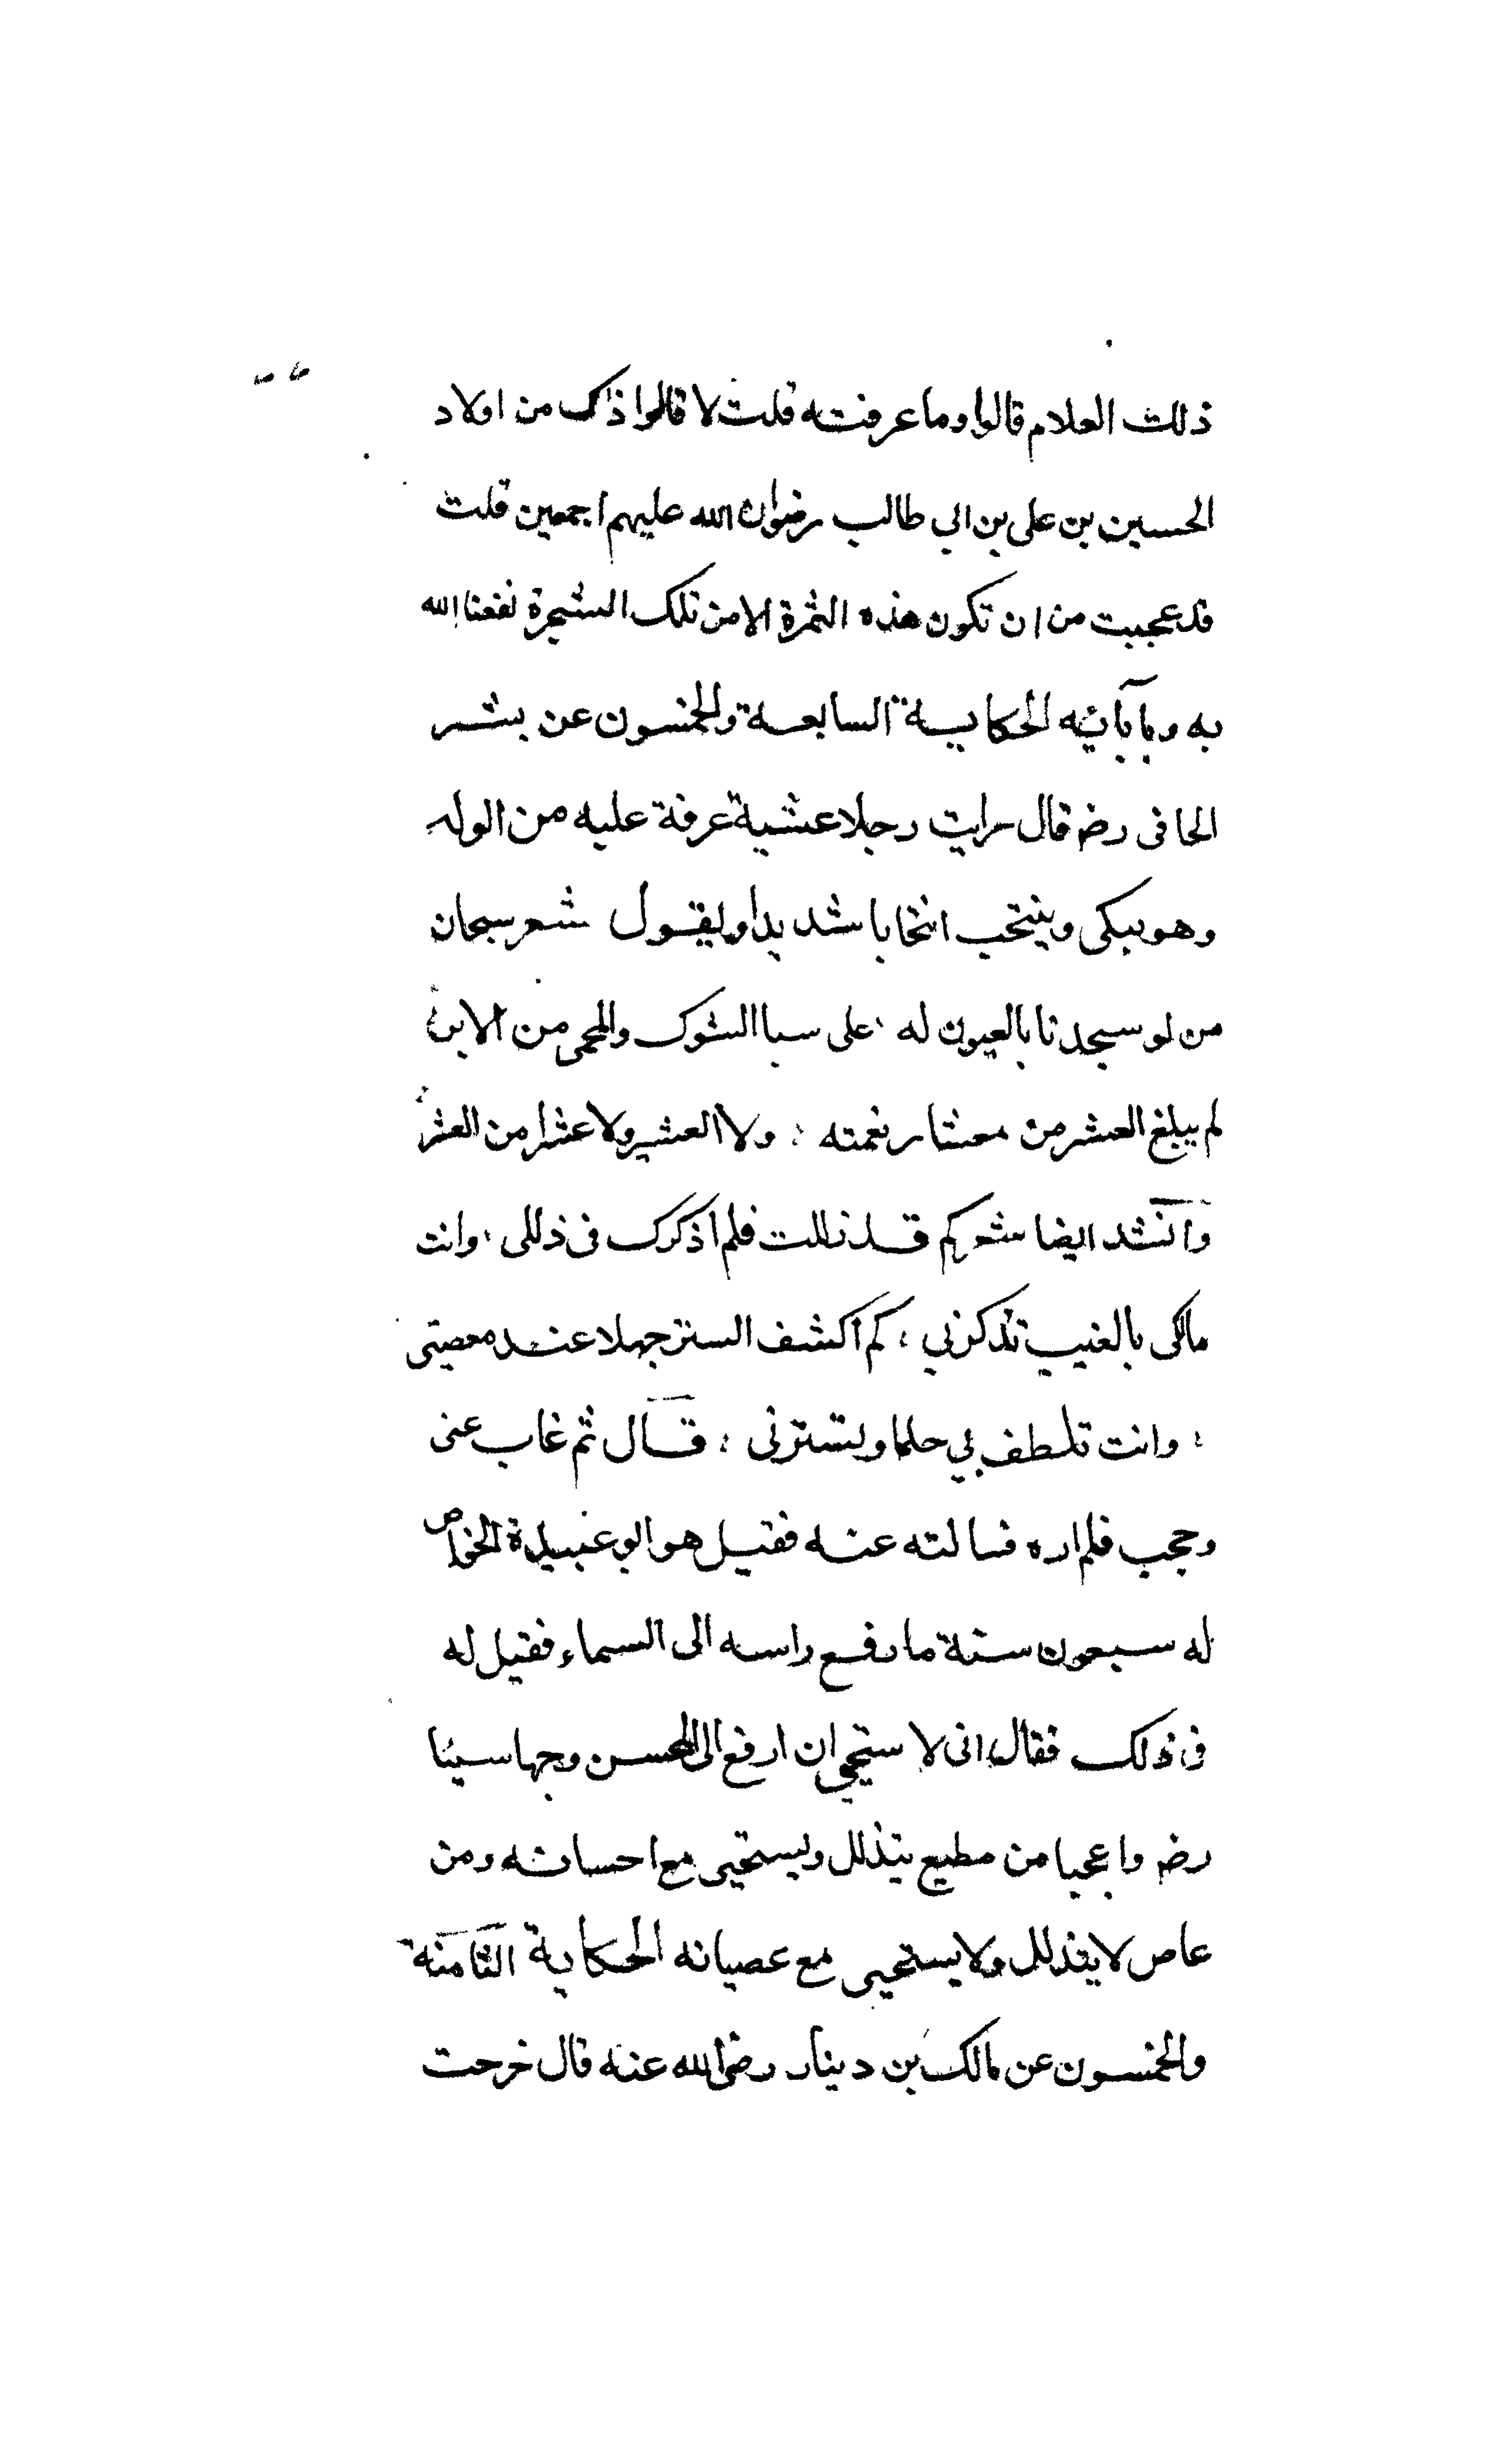 ذلك الغلام قالوا وما عرفته قلت لا قالوا ذاك من اولاد
الحسين بن على بن ابي طالب رضوان الله عليهم اجمعين قلت
قد عجبت من ان تكون هذه الثمرة الا من تلك الشجرة نفعنا الله
به وبآبائه الحكاية السابعة والخمسون عن بشر
الحافى رضه قال رايت رجلا عشية عرفة عليه من الوله
وهو يبكى وينتحب انتحابا شديدا ويقول شعر سبحان
من لو سجدنا بالعيون له على سبا الشوك والمحمى من الابر
لم يبلغ العشر من معشار نعمته ولا العشير ولا عشرا من العشر
وانشد ايضا شعر كم قد زللت فلم اذكرك فى زللى وانت
مالكى بالغيب تذكرني كم اكشف الستر جهلا عند معصيتى
وانت تلطف بي حلما وتسترنى قال ثم غاب عنى
وحجب فلم اره فسالته عنه فقيل هو ابو عبيدة الخواص
له سبعون سنة ما رفع راسه الى السماء فقيل له
فى ذلك فقال انى لا ستحيي ان ارفع الى المحسن وجها سيئا
رضه واعجبا من مطيع يتذلل ويستحيى مع احسانه ومن
عاص لا يتذلل ولا يستحيى مع عصيانه الحكاية الثامنة
والخمسون عن مالك بن دينار رضى الله عنه قال خرجت